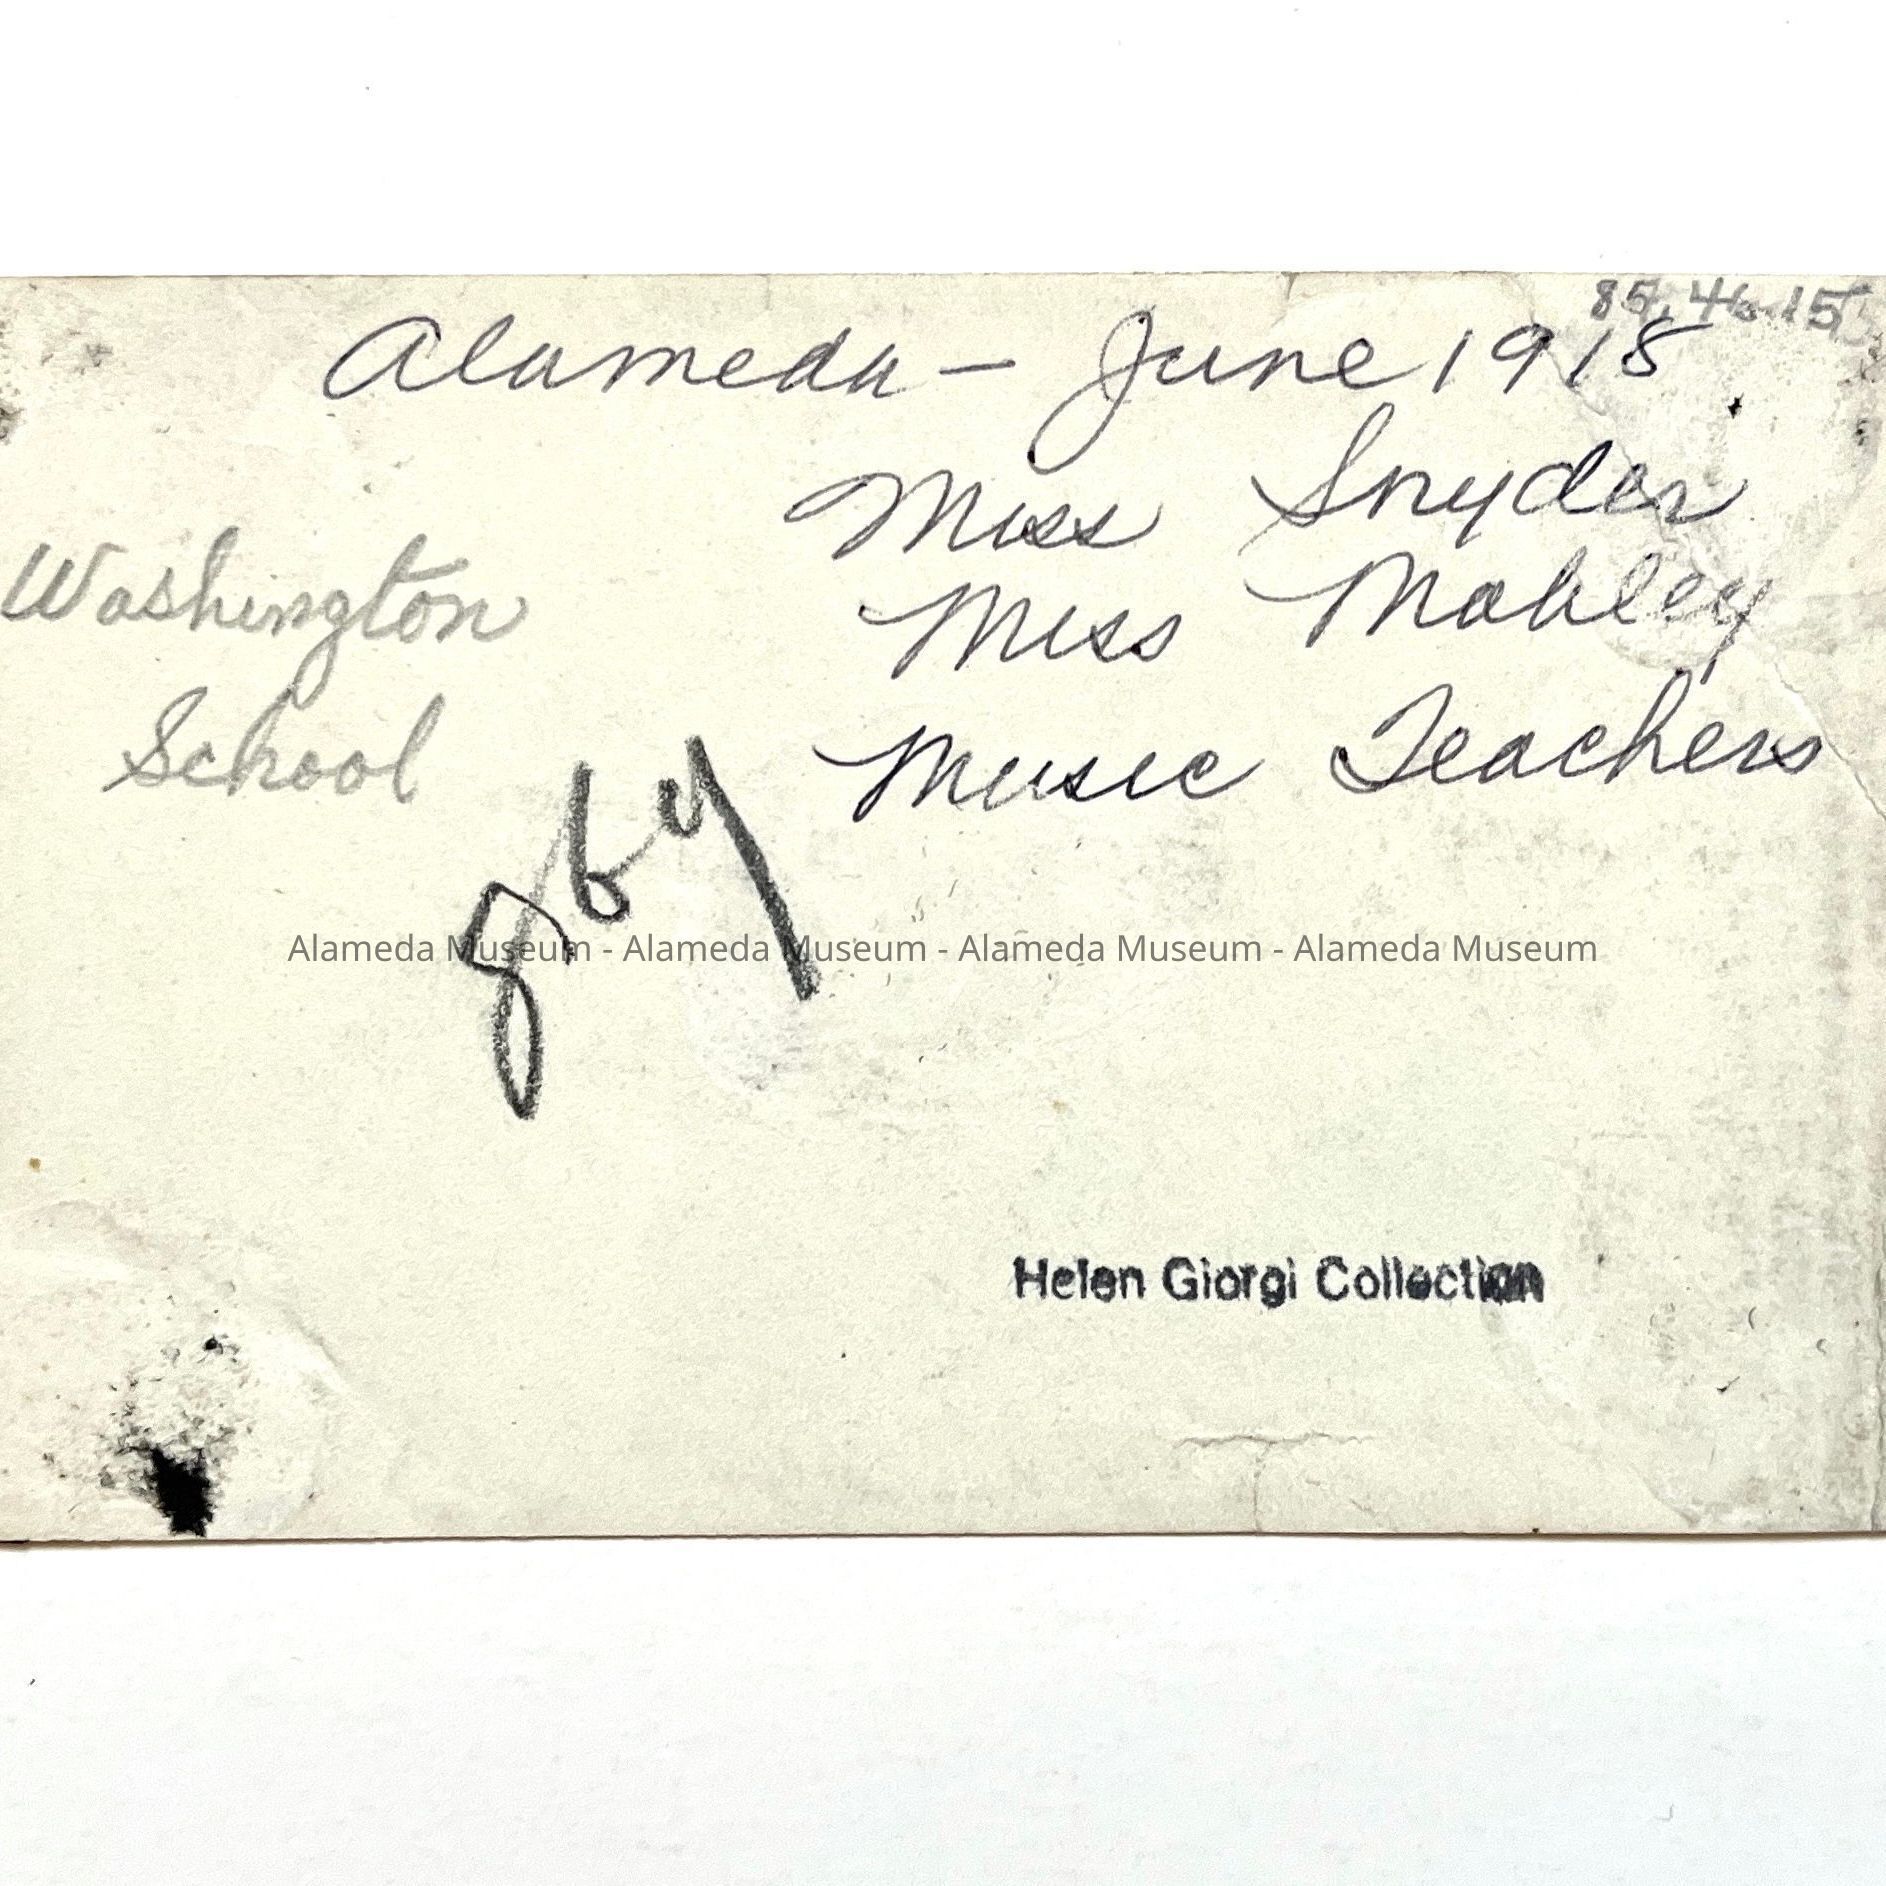 85.46.15
Alameda - June 1918
Miss Snyder
Miss Mobley
Music Teachers
Washington
School
Alameda Museum - Alameda Museum - Alameda Museum - Alameda Museum
Helen Giorgi Collection